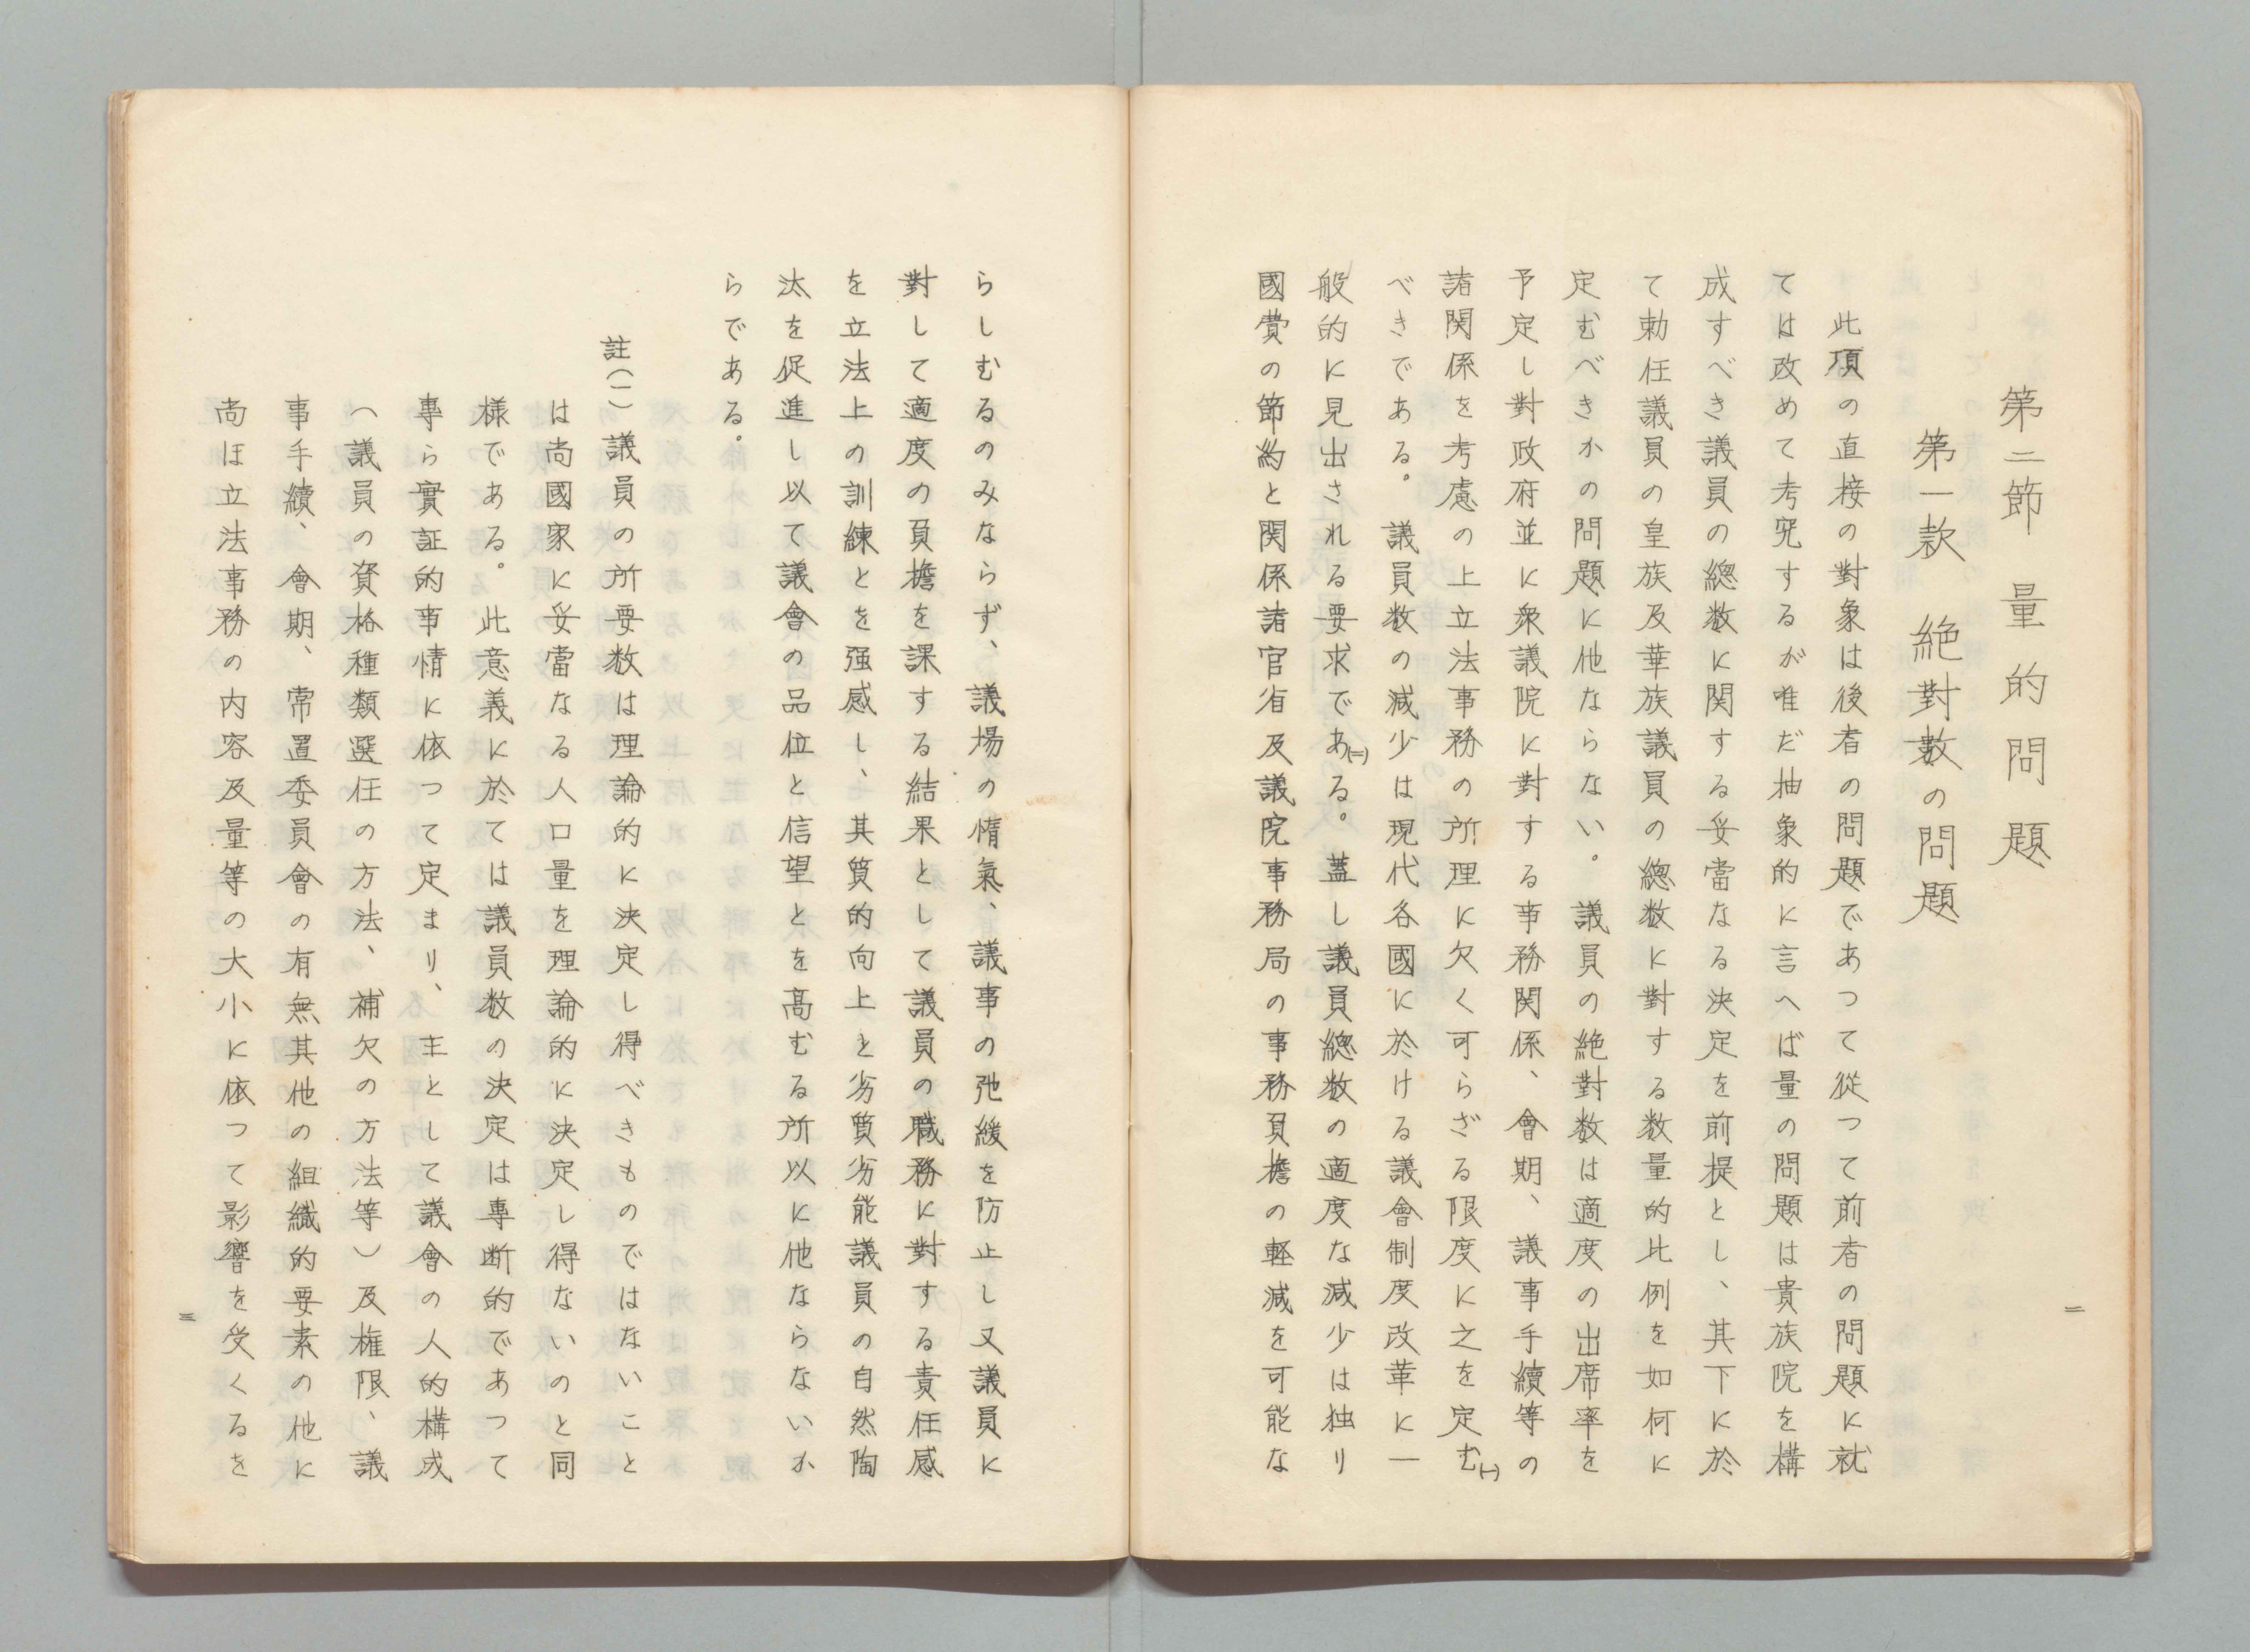 第二節　量的問題
第一款　絶對数の問題
此項の直接の對象は後者の問題であつて從つて前者の問題に就
ては改めて考究するが唯だ抽象的に言へば量の問題は貴族院を構
成すべき議員の總数に関する妥當なる決定を前提とし、其下に於
て勅任議員の皇族及華族議員の總数に對する数量的比例を如何に
定むべきかの問題に他ならない。議員の絶對数は適度の出席率を
予定し對政府並に衆議院に對する事務関係、會期、議事手續等の
諸関係を考慮の上立法事務の所理に欠く可らざる限度に之を定む(一)
べきである。議員数の減少は現代各國に於ける議會制度改革に一
般的に見出される要求であ(二)る。蓋し議員總数の適度な減少は独り
國費の節約と関係諸官省及議院事務局の事務負擔の軽減を可能な
二
らしむるのみならず、議場の惰氣、議事の弛緩を防止し又議員に
對して適度の負擔を課する結果として議員の職務に對する責任感
を立法上の訓練とを强感し、其質的向上と劣質劣能議員の自然陶
汰を促進し以て議會の品位と信望とを高むる所以に他ならないか
らである。
註(一)議員の所要数は理論的に決定し得べきものではないこと
は尚國家に妥當なる人口量を理論的に決定し得ないのと同
様である。此意義に於ては議員数の決定は専断的であつて
專ら實証的事情に依つて定まり、主として議會の人的構成
(議員の資格種類選任の方法、補欠の方法等)及権限、議
事手續、會期、常置委員會の有無其他の組織的要素の他に
尚ほ立法事務の内容及量等の大小に依つて影響を受くるを
三